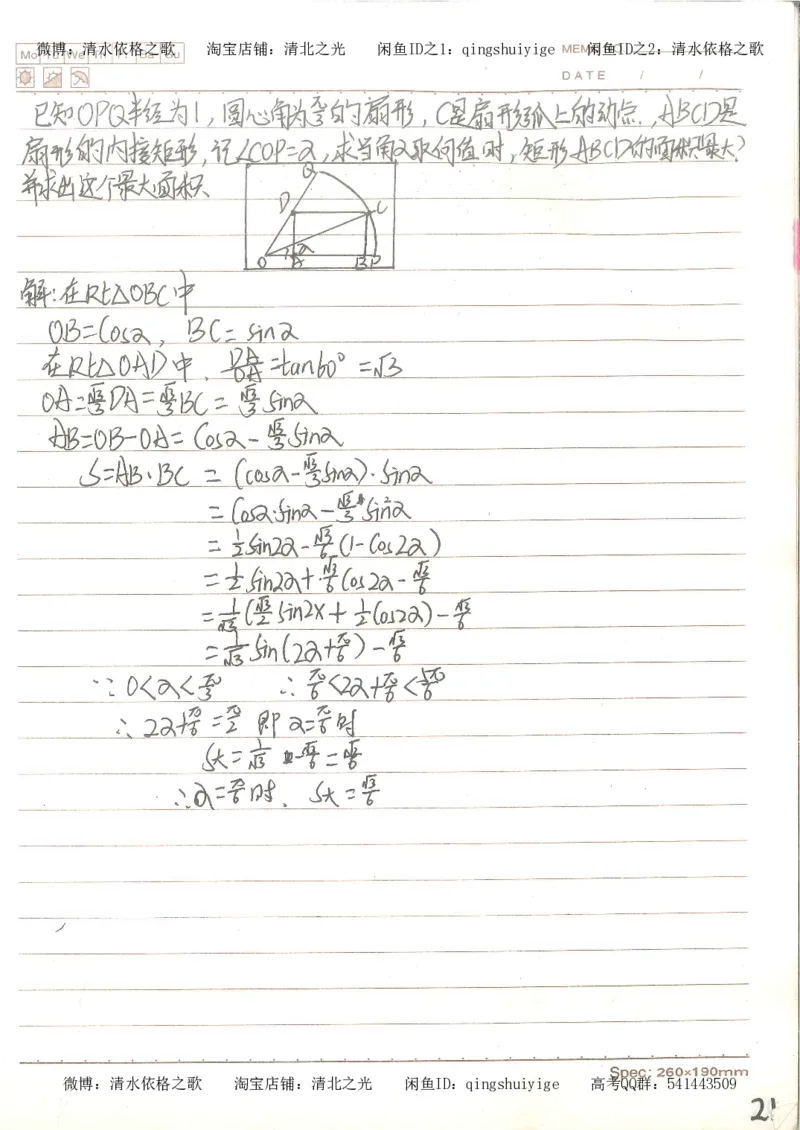 微博：清水依格之歌 淘宝店铺：清北之光 闲鱼ID之1：qingshuiyige 闲鱼ID之2：清水依格之歌
Mo Tu We Th Fr Sa Su
MEMO NO.
DATE / /
已知OPQ半径为1，圆心角为π/3的扇形，C是扇形弧上的动点，ABCD是
扇形的内接矩形，记∠COP=α，求当角α取何值时，矩形ABCD的面积最大？
并求出这个最大面积.
Q
D C
α
O A B P
解：在Rt△OBC中
OB=Cosα，BC=sinα
在Rt△OAD中，DA/OA=tan60°=√3
OA=√3/3DA=√3/3BC=√3/3sinα
AB=OB-OA=Cosα-√3/3sinα
S=AB·BC=(cosα-√3/3sinα)·sinα
=Cosα·sinα-√3/3sin²α
=1/2sin2α-√3/6(1-Cos2α)
=1/2sin2α+√3/6Cos2α-√3/6
=1/√3(√3/2sin2x+1/2Cos2α)-√3/6
=1/√3sin(2α+π/6)-√3/6
∵0<α<π/3 ∴π/6<2α+π/6<5π/6
∴2α+π/6=π/2 即α=π/6时
S大=1/√3-√3/6=√3/6
∴α=π/6时，S大=√3/6
Spec: 260×190mm
微博：清水依格之歌 淘宝店铺：清北之光 闲鱼ID：qingshuiyige 高考QQ群：541443509
21